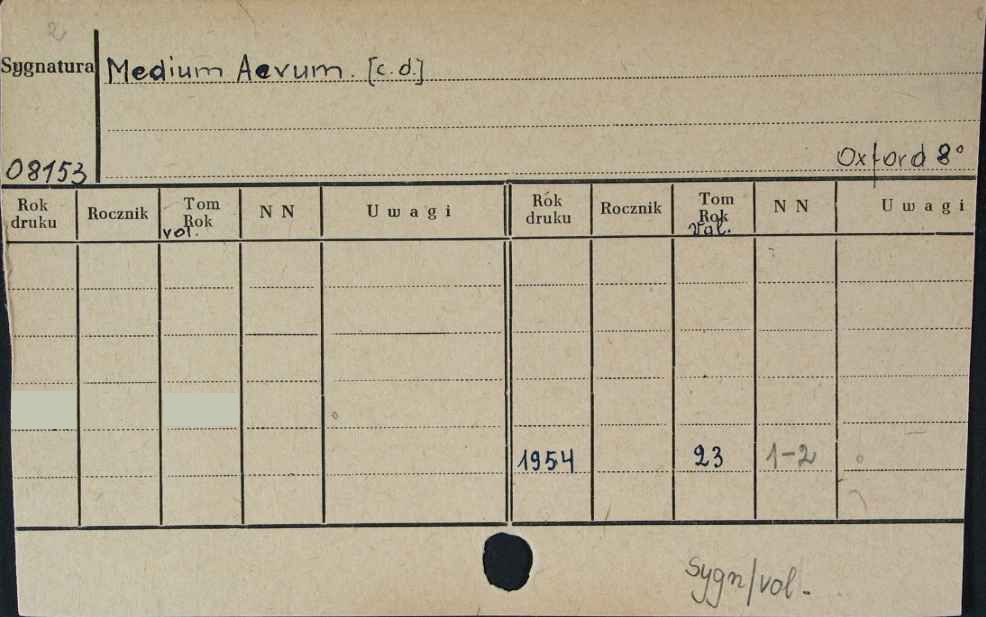 2
Sygnatura Medium Aevum. [c.d.]
08153 Oxford 8°
Rok druku Rocznik Tom Rok vol. NN Uwagi Rok druku Rocznik Tom Rok Vol. NN Uwagi
1954 23 1-2
Sygn/vol.